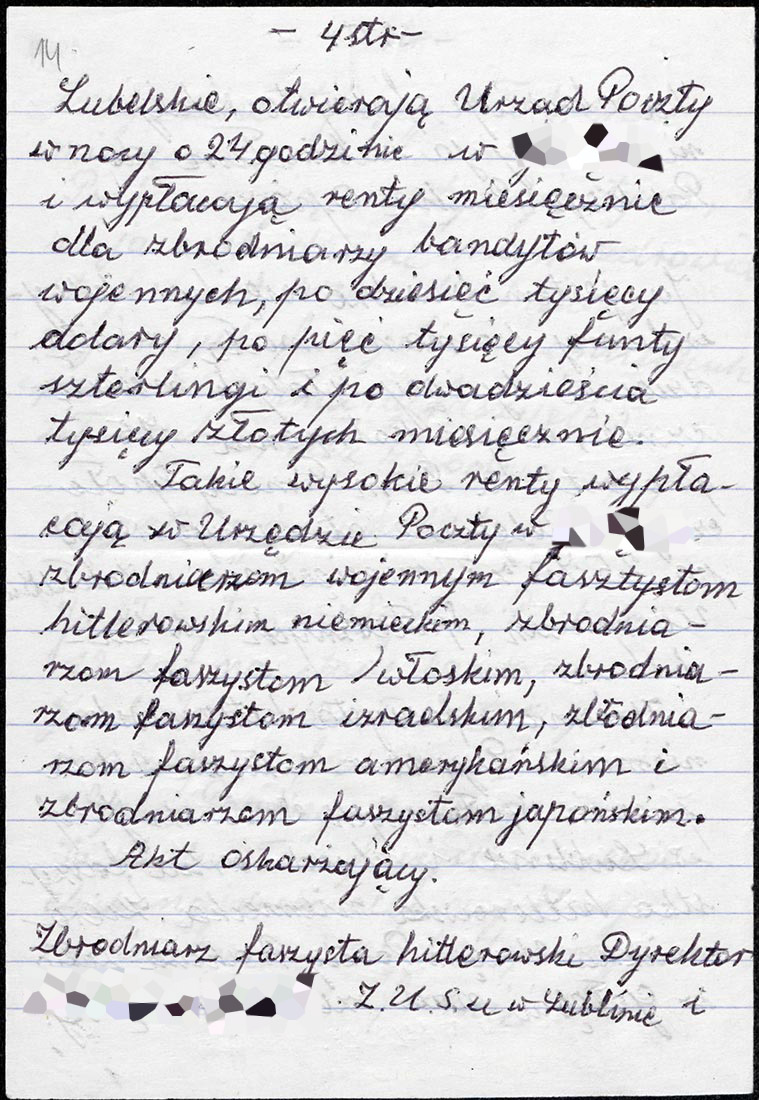 - 4 str -
14.
Lubelskie, otwierają Urzad Poczty
w nocy o 24 godzinie w
i wypłacają renty miesięcznie
dla zbrodniarzy bandytów
wojennych, po dziesięć tysięcy
dolary, po pięć tysięcy funty
szterlingi i po dwadzieścia
tysięcy złotych miesięcznie.
Takie wysokie renty wypła-
cają w Urzędzie Poczty w
zbrodniarzom wojennym faszystom
hitlerowskim niemieckim, zbrodnia-
rzom faszystom włoskim, zbrodnia-
rzom faszystom izraelskim, zbrodnia-
rzom faszystom amerykańskim i
zbrodniarzom faszystom japońskim.
Akt oskarżający.
Zbrodniarz faszysta hitlerowski Dyrektor
Z.U.S.u w Lublinie i